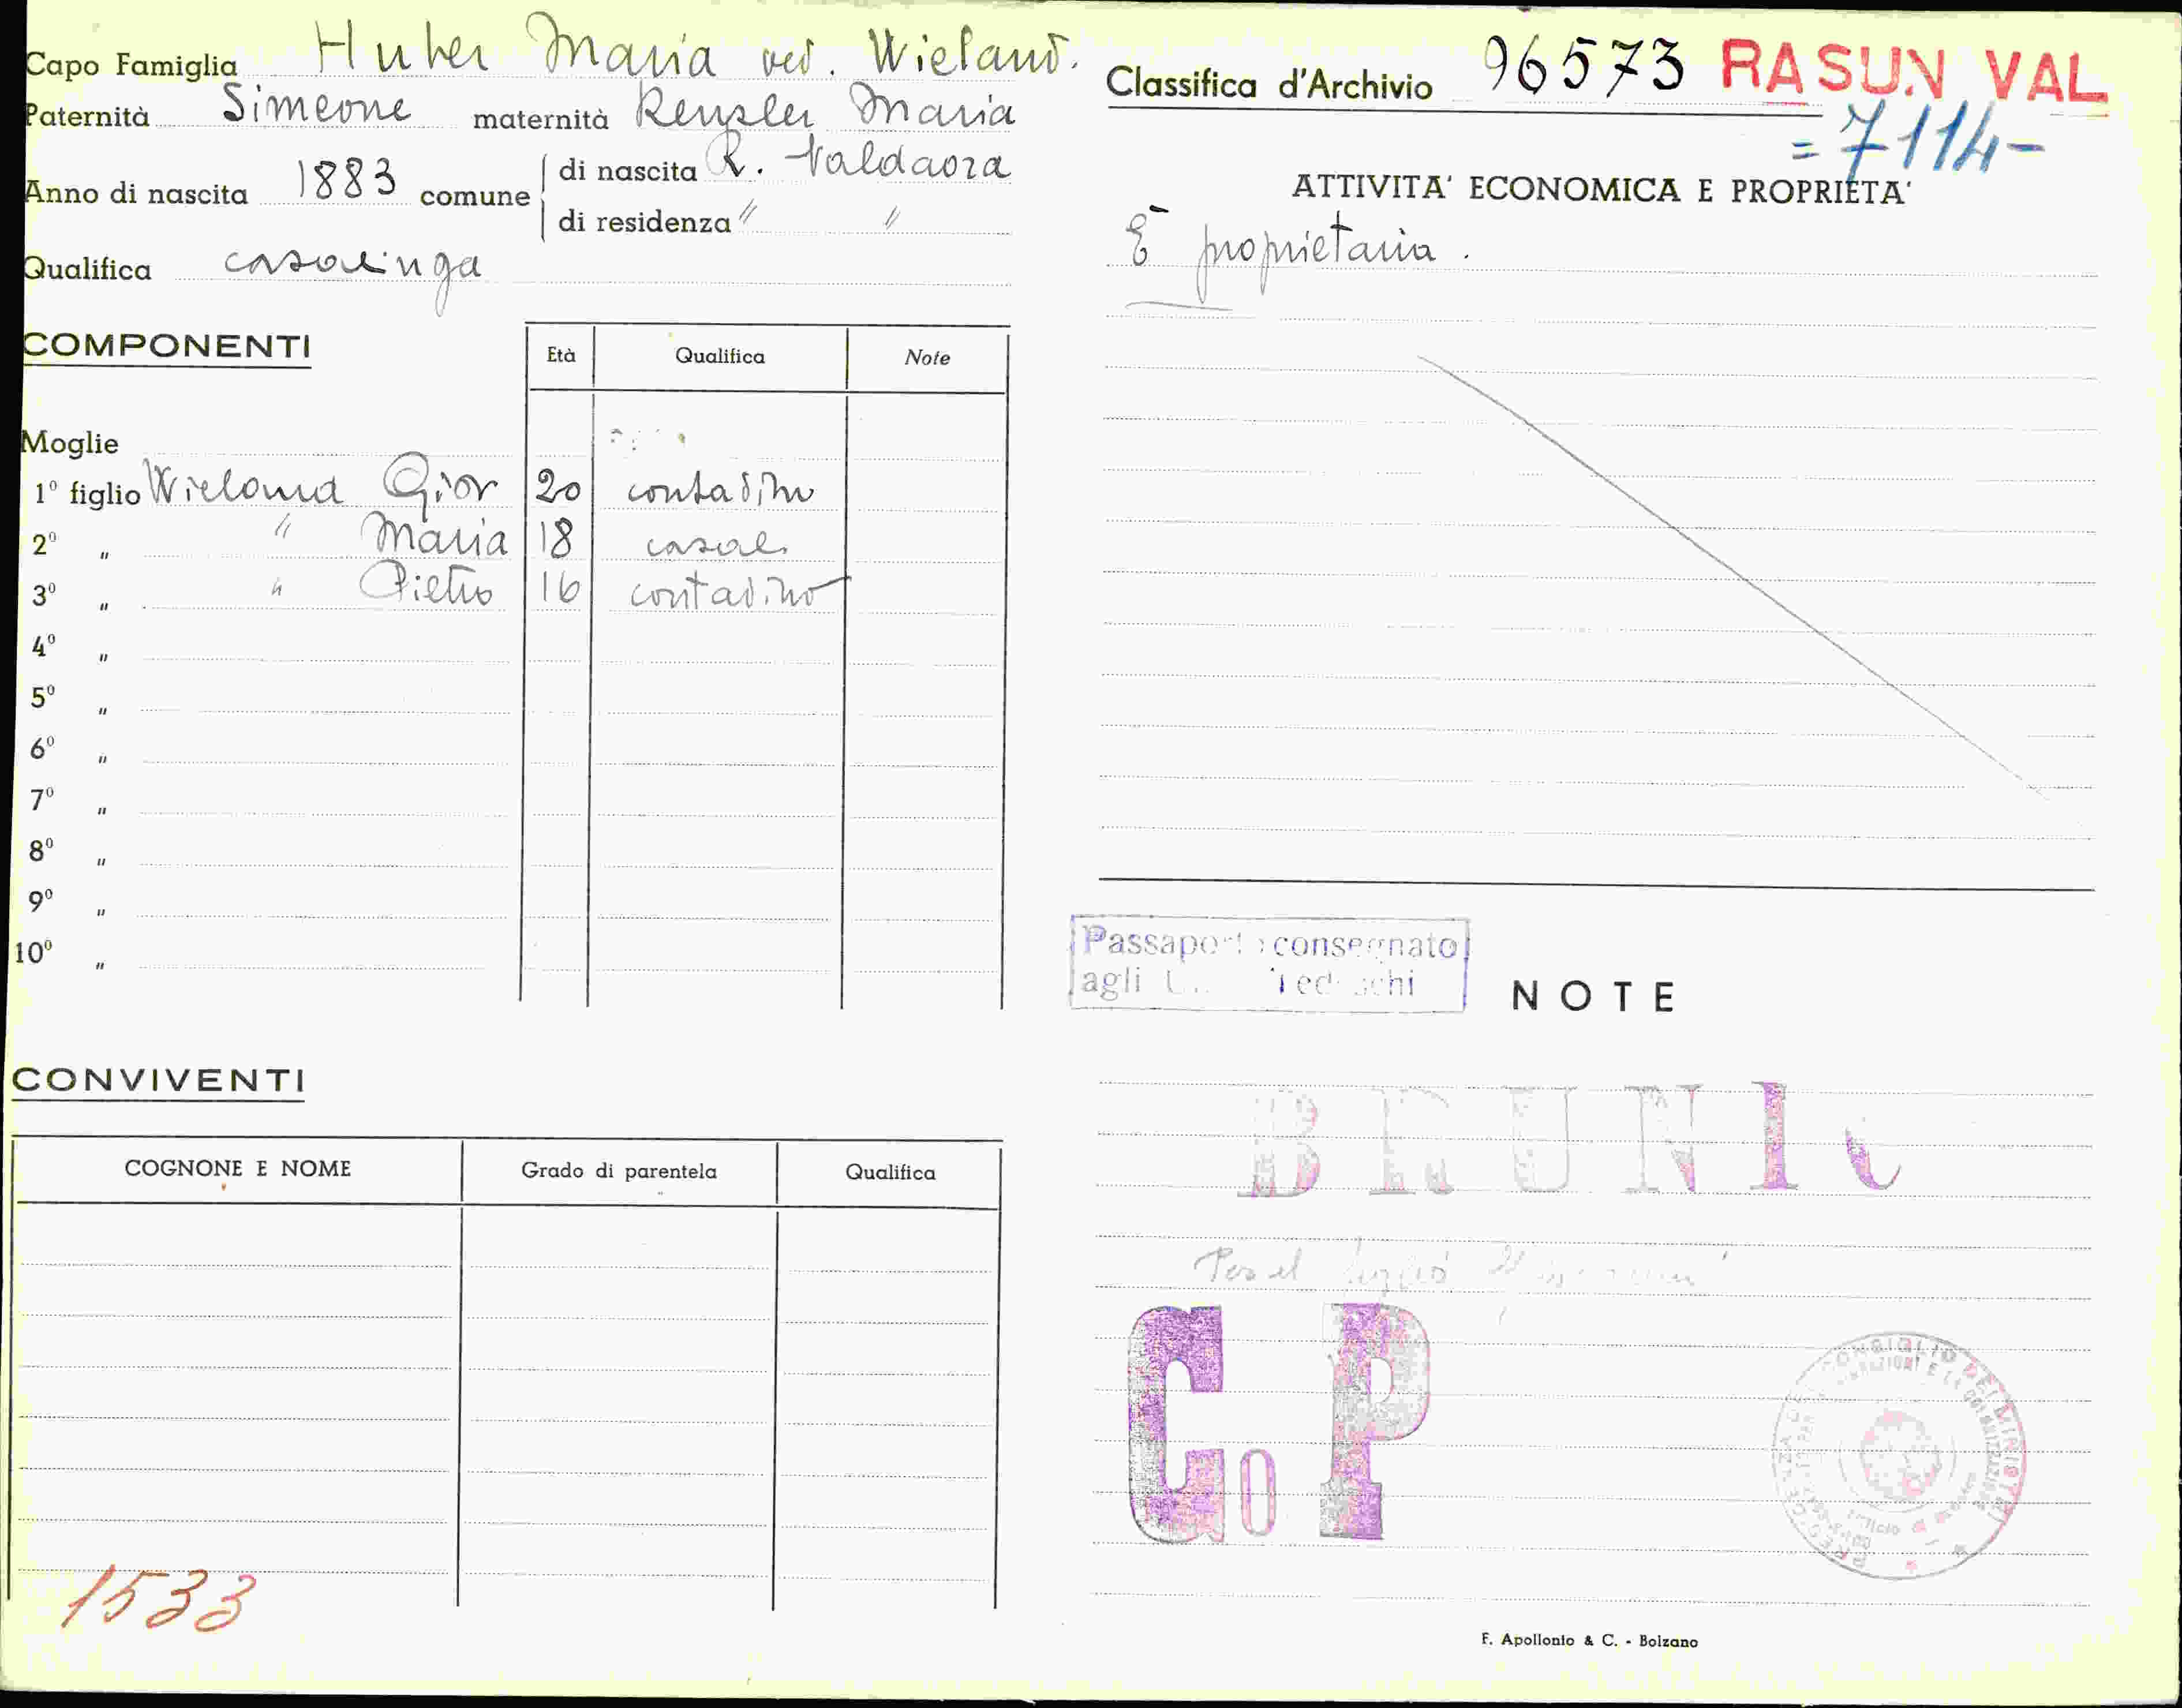 Capo Famiglia Huber Maria ved. Wieland.
Paternità Simeone maternità Renzler Maria
Anno di nascita 1883 comune di nascita R. Valdaora
di residenza " "
Qualifica casalinga
COMPONENTI
Età Qualifica Note
Moglie
1º figlio Wieland Gior 20 contadino
2º " " Maria 18 casal.
3º " " Pietro 16 contadino
4º "
5º "
6º "
7º "
8º "
9º "
10º "
CONVIVENTI
COGNONE E NOME Grado di parentela Qualifica
1533
Classifica d'Archivio 96573 RASUN VAL
=7114-
ATTIVITA' ECONOMICA E PROPRIETA'
È proprietaria.
Passaporto consegnato
agli Tedeschi
NOTE
BRUNIC
Per il
Co P
F. Apollonio & C. - Bolzano